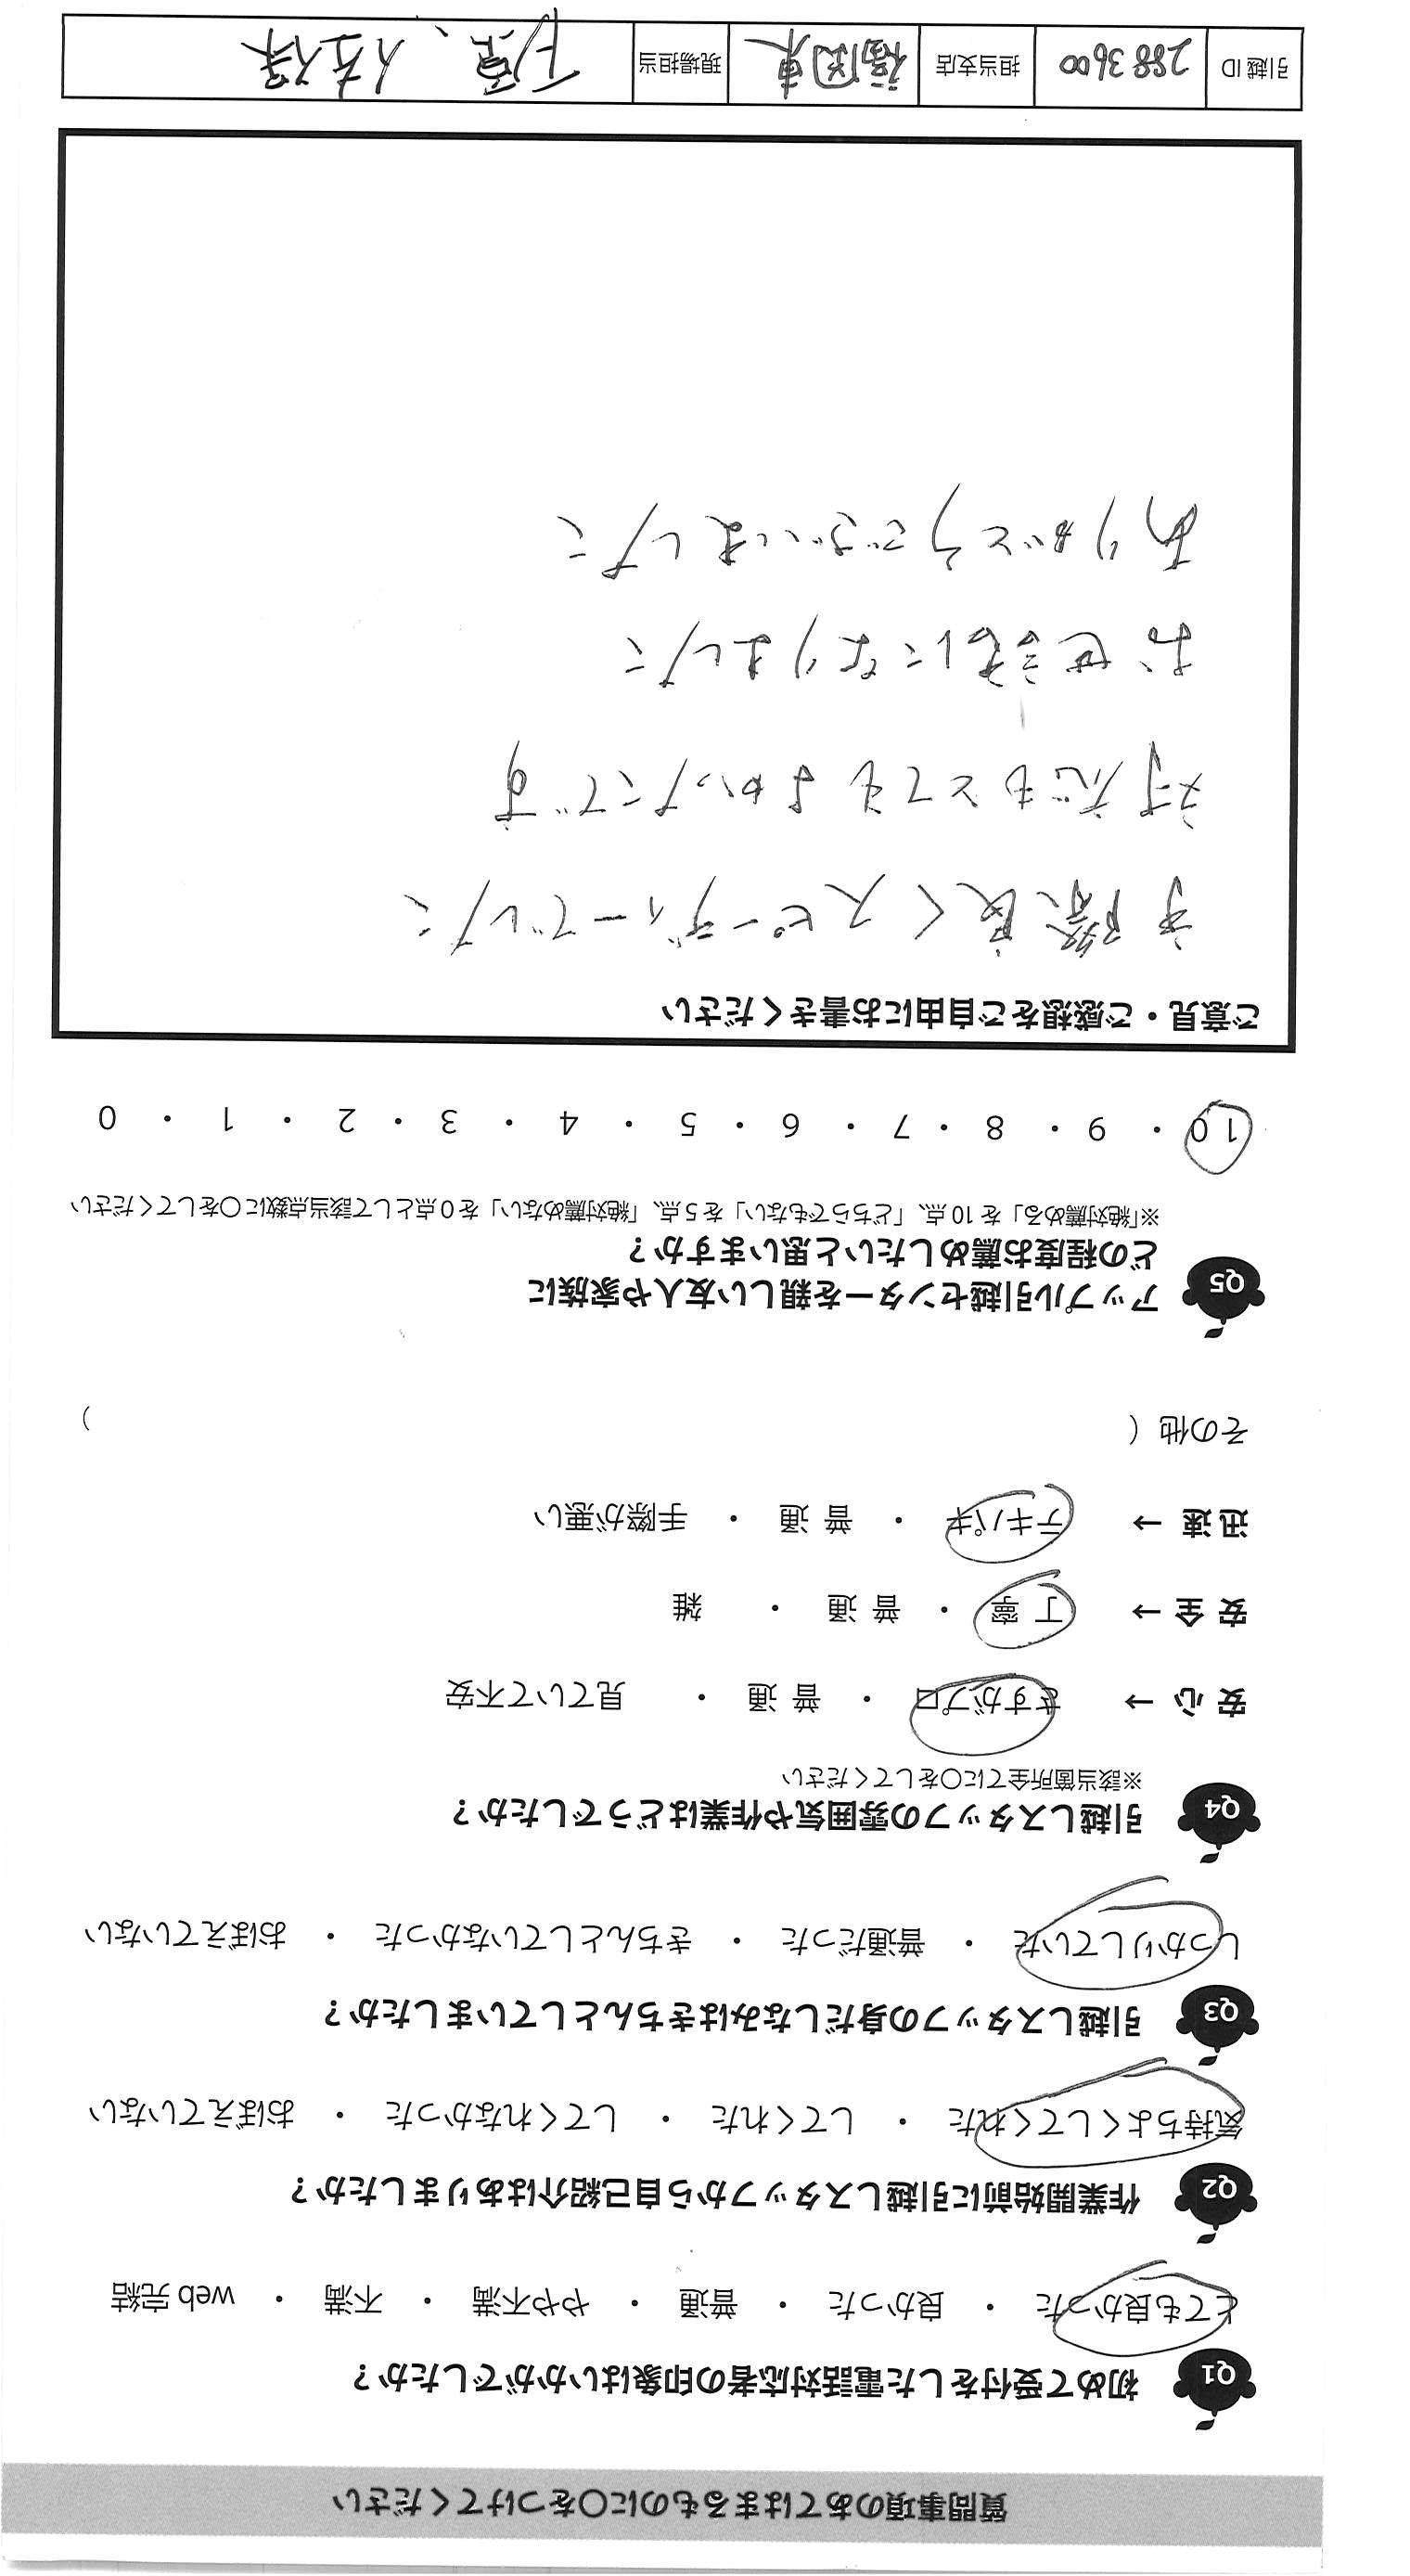 質問事項のあてはまるものに○をつけてください
Q1 初めて受付をした電話対応者の印象はいかがでしたか？
とても良かった ・ 良かった ・ 普通 ・ やや不満 ・ 不満 ・ web 完結
Q2 作業開始前に引越しスタッフから自己紹介はありましたか？
気持ちよくしてくれた ・ してくれた ・ してくれなかった ・ おぼえていない
Q3 引越しスタッフの身だしなみはきちんとしていましたか？
しっかりしていた ・ 普通だった ・ きちんとしていなかった ・ おぼえていない
Q4 引越しスタッフの雰囲気や作業はどうでしたか？
※該当箇所全てに○をしてください
安 心 → さすがプロ ・ 普 通 ・ 見ていて不安
安 全 → 丁 寧 ・ 普 通 ・ 雑
迅 速 → テキパキ ・ 普 通 ・ 手際が悪い
その他（ ）
Q5 アップル引越センターを親しい友人や家族に
どの程度お薦めしたいと思いますか？
※「絶対薦める」を 10 点、「どちらでもない」を 5 点、「絶対薦めない」を 0 点として該当点数に○をしてください
10 ・ 9 ・ 8 ・ 7 ・ 6 ・ 5 ・ 4 ・ 3 ・ 2 ・ 1 ・ 0
ご意見・ご感想をご自由にお書きください
手際良くスピーディーでした
対応もとてもよかったです
お世話になりました
ありがとうございました
引越 ID 2883600 担当支店 福岡東 現場担当